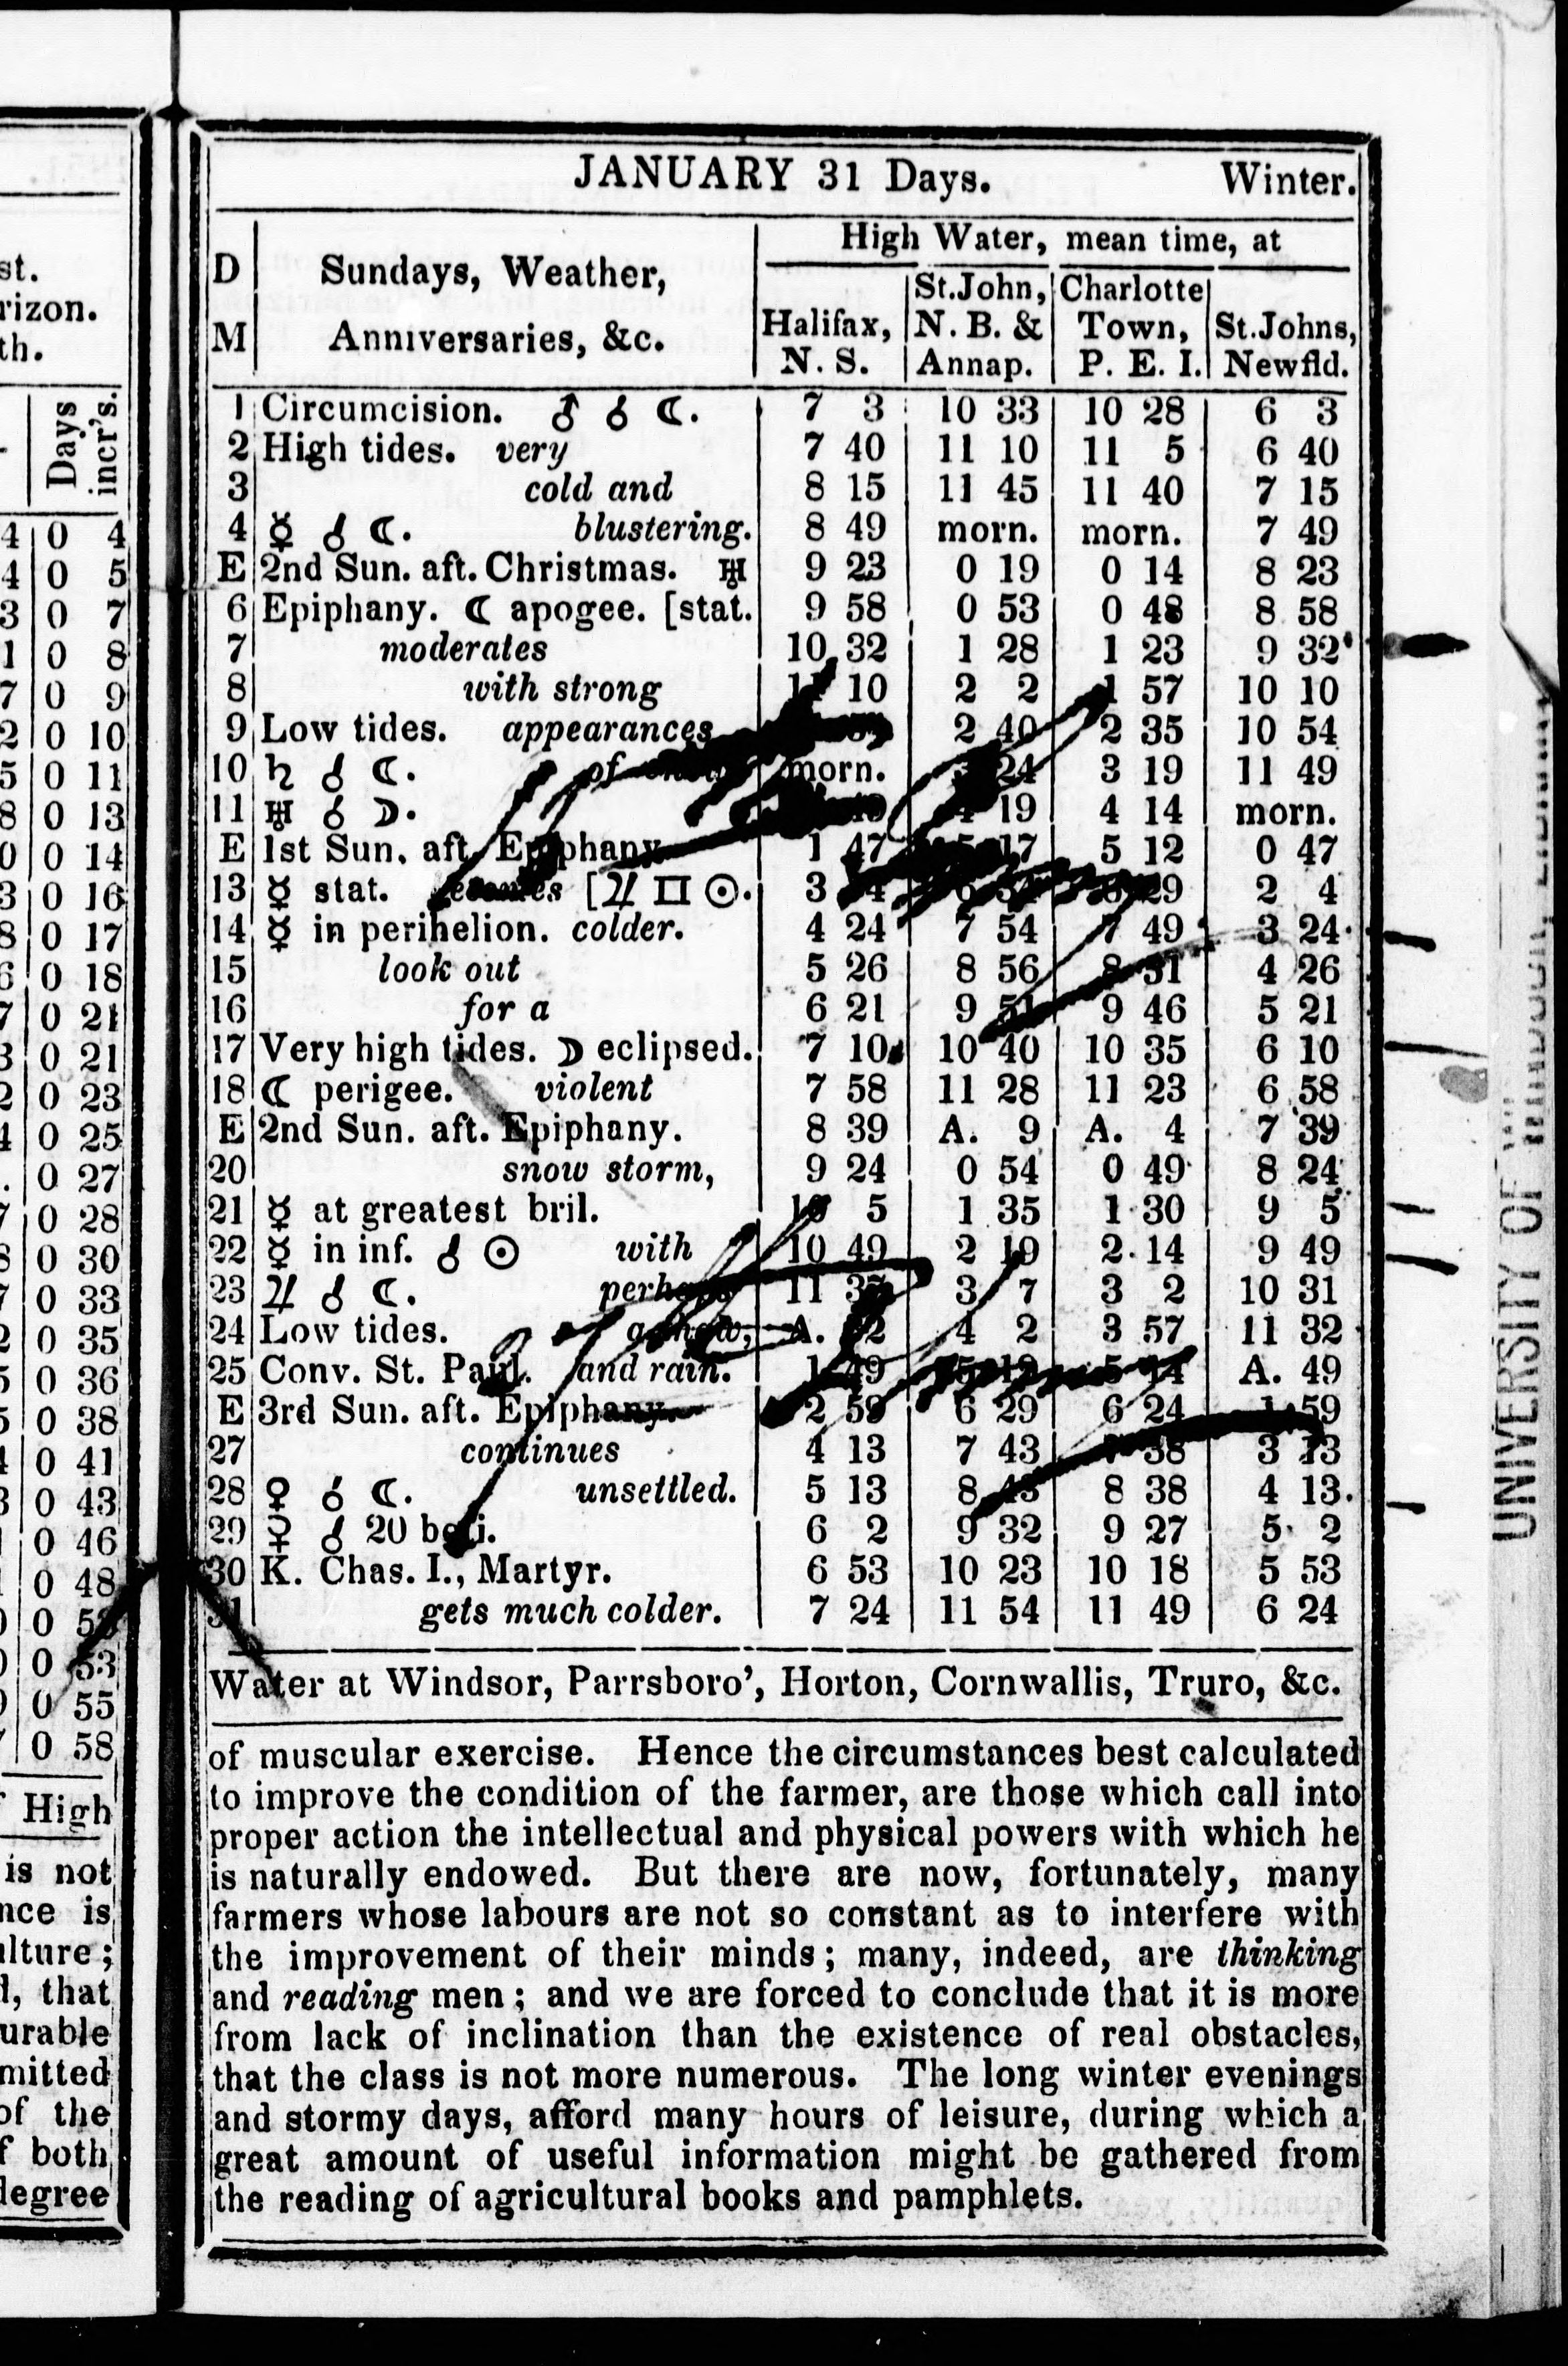 JANUARY 31 Days. Winter.
D Sundays, Weather, High Water, mean time, at
M Anniversaries, &c. Halifax, N. S. St. John, N. B. & Annap. Charlotte Town, P. E. I. St. Johns, Newfld.
1 Circumcision. ♂ ☌ ☾. 7 3 10 33 10 28 6 3
2 High tides. very 7 40 11 10 11 5 6 40
3 cold and 8 15 11 45 11 40 7 15
4 ☿ ☌ ☾. blustering. 8 49 morn. morn. 7 49
E 2nd Sun. aft. Christmas. ♅ 9 23 0 19 0 14 8 23
6 Epiphany. ☾ apogee. [stat. 9 58 0 53 0 48 8 58
7 moderates 10 32 1 28 1 23 9 32
8 with strong 11 10 2 2 1 57 10 10
9 Low tides. appearances 2 40 2 35 10 54
10 ♄ ☌ ☾. of morn. 3 24 3 19 11 49
11 ♅ ☌ ☽. 4 19 4 14 morn.
E 1st Sun. aft. Epiphany 1 47 5 17 5 12 0 47
13 ☿ stat. [♃ □ ☉. 3 4 2 4
14 ☿ in perihelion. colder. 4 24 7 54 7 49 3 24
15 look out 5 26 8 56 8 51 4 26
16 for a 6 21 9 51 9 46 5 21
17 Very high tides. ☽ eclipsed. 7 10 10 40 10 35 6 10
18 ☾ perigee. violent 7 58 11 28 11 23 6 58
E 2nd Sun. aft. Epiphany. 8 39 A. 9 A. 4 7 39
20 snow storm, 9 24 0 54 0 49 8 24
21 ☿ at greatest bril. 10 5 1 35 1 30 9 5
22 ☿ in inf. ☌ ☉ with 10 49 2 19 2 14 9 49
23 ♃ ☌ ☾. perhaps 11 37 3 7 3 2 10 31
24 Low tides. a thaw, A. 32 4 2 3 57 11 32
25 Conv. St. Paul. and rain. 1 49 5 14 A. 49
E 3rd Sun. aft. Epiphany. 2 59 6 29 6 24 1 59
27 continues 4 13 7 43 7 38 3 13
28 ♀ ☌ ☾. unsettled. 5 13 8 43 8 38 4 13.
29 ♀ ☌ 20 6 2 9 32 9 27 5 2
30 K. Chas. I., Martyr. 6 53 10 23 10 18 5 53
31 gets much colder. 7 24 11 54 11 49 6 24
Water at Windsor, Parrsboro', Horton, Cornwallis, Truro, &c.
of muscular exercise. Hence the circumstances best calculated
to improve the condition of the farmer, are those which call into
proper action the intellectual and physical powers with which he
is naturally endowed. But there are now, fortunately, many
farmers whose labours are not so constant as to interfere with
the improvement of their minds; many, indeed, are thinking
and reading men; and we are forced to conclude that it is more
from lack of inclination than the existence of real obstacles,
that the class is not more numerous. The long winter evenings
and stormy days, afford many hours of leisure, during which a
great amount of useful information might be gathered from
the reading of agricultural books and pamphlets.
Days incr's.
0 4
0 5
0 7
0 8
0 9
0 10
0 11
0 13
0 14
0 16
0 17
0 18
0 21
0 21
0 23
0 25
0 27
0 28
0 30
0 33
0 35
0 36
0 38
0 41
0 43
0 46
0 48
0 53
0 55
0 58
High
is not
is
that
of the
both
UNIVERSITY OF WINDSOR LIBRARY